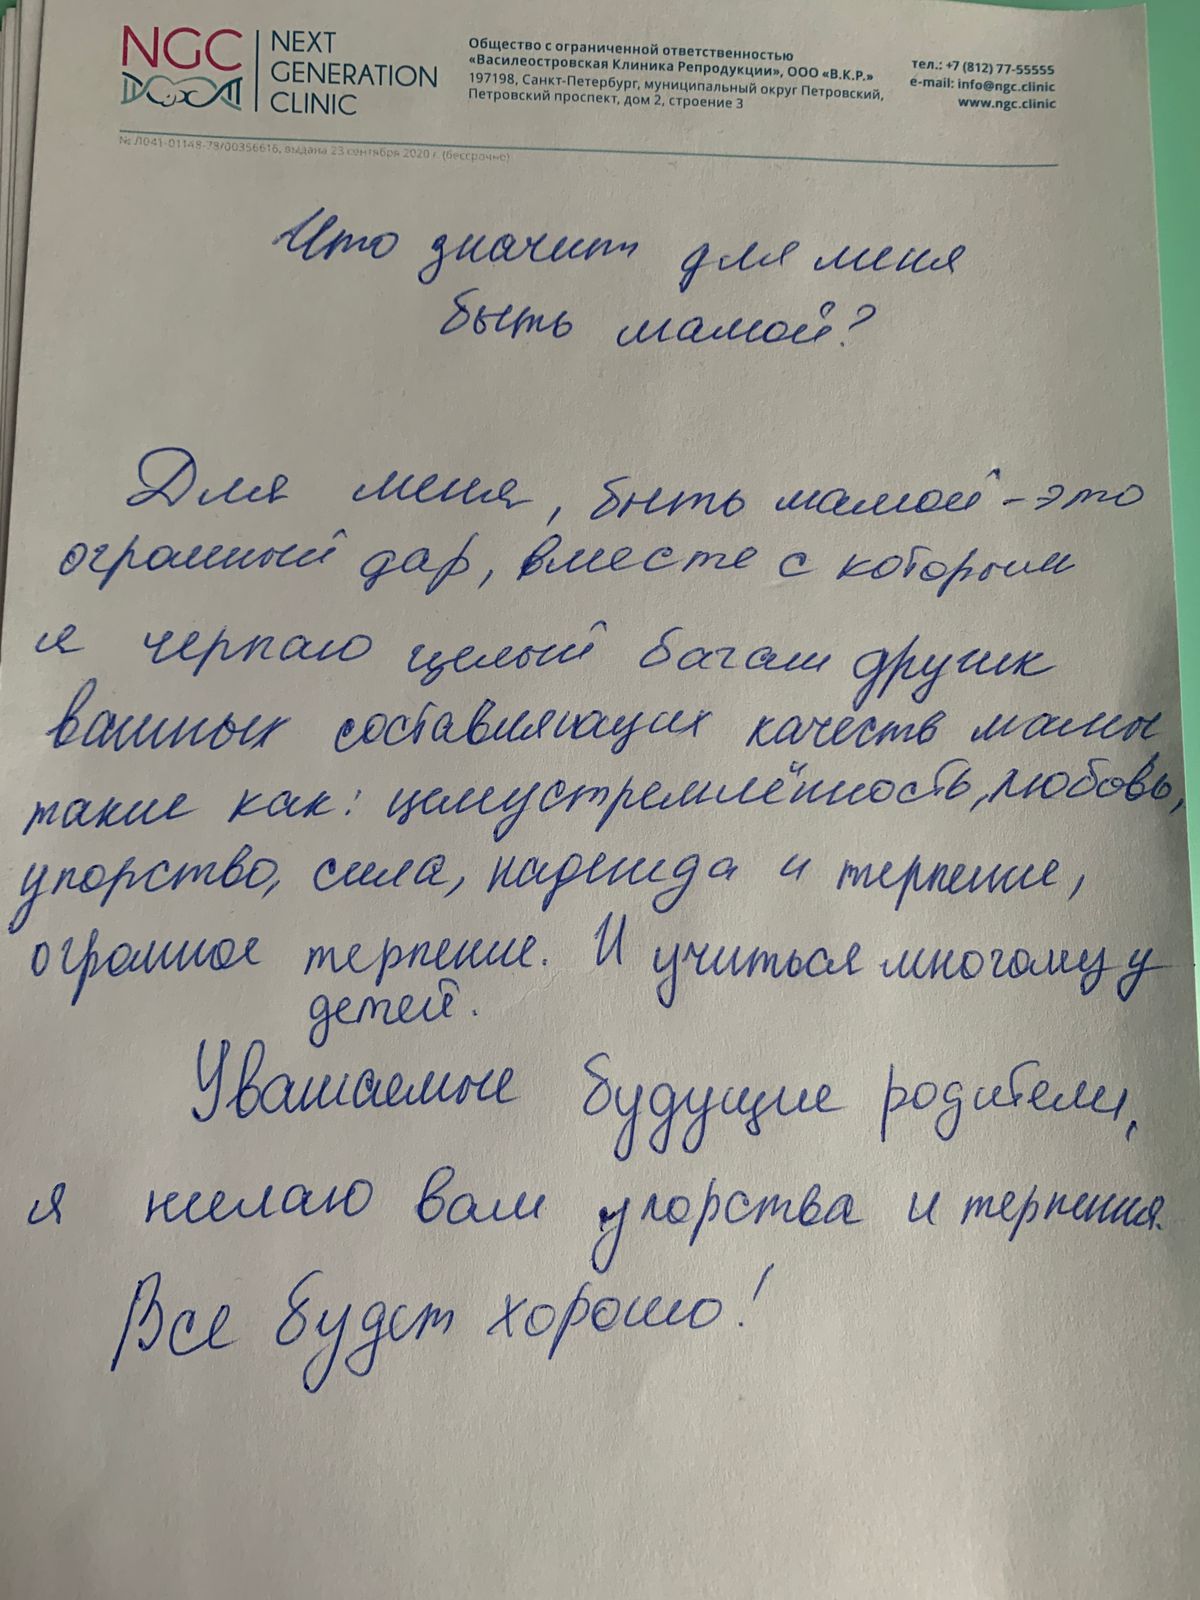 NGC
NEXT
GENERATION
CLINIC
Общество с ограниченной ответственностью
«Василеостровская Клиника Репродукции», ООО «В.К.Р.»
197198, Санкт-Петербург, муниципальный округ Петровский,
Петровский проспект, дом 2, строение 3
тел.: +7 (812) 77-55555
e-mail: info@ngc.clinic
www.ngc.clinic
№ Л041-01148-78/00356616, выдана 23 сентября 2020 г. (бессрочно)
Что значит для меня
быть мамой?
Для меня, быть мамой - это
огромный дар, вместе с которым
я черпаю целый багаж других
важных составляющих качеств мамы
такие как: целеустремлённость, любовь,
упорство, сила, надежда и терпение,
огромное терпение. И учиться многому у
детей.
Уважаемые будущие родители,
я желаю вам упорства и терпения.
Все будет хорошо!